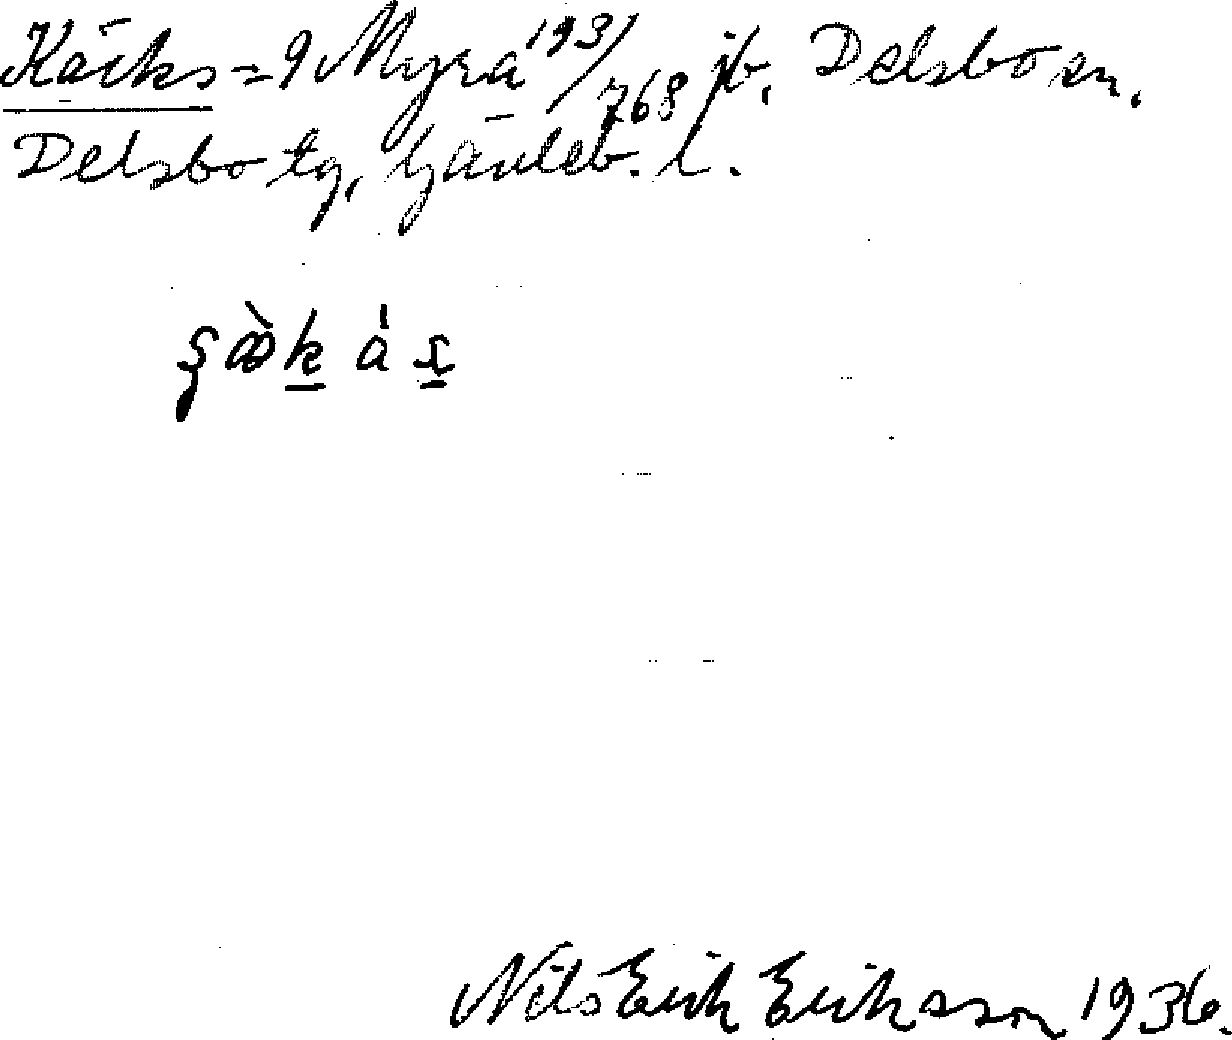 Käcks = 9 Myra 193/768 jb. Delsbo sn.
Delsbo tg, Gävleb. l.
Nils Erik Eriksson 1936.